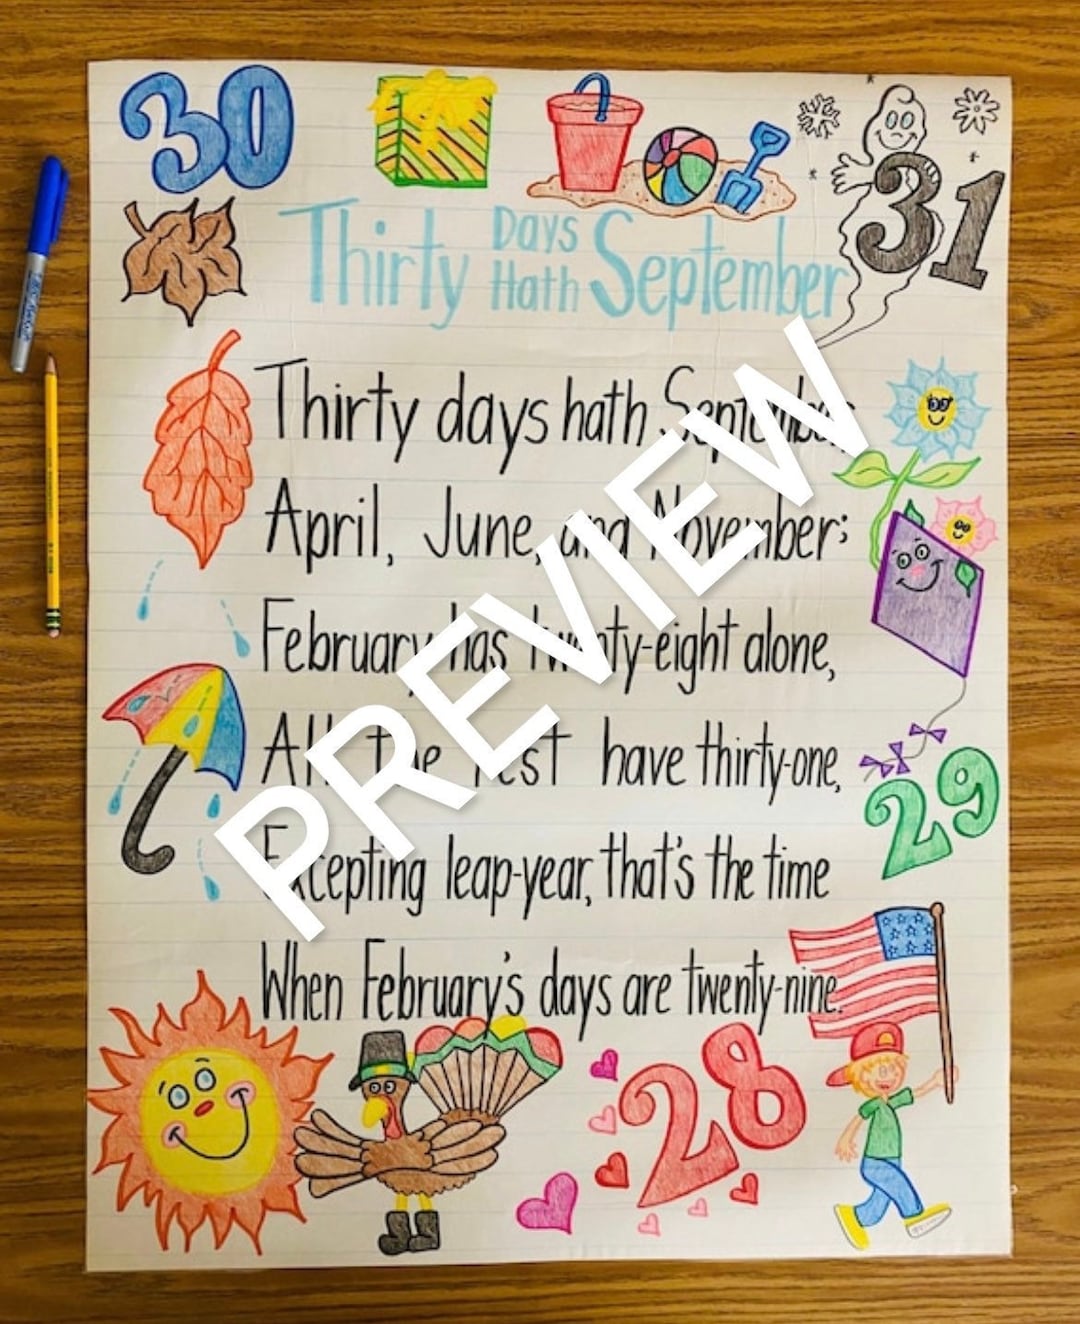 30
31
Thirty Days Hath September
Thirty days hath September,
April, June, and November;
February has twenty-eight alone,
All the rest have thirty-one,
Excepting leap-year, that's the time
When February's days are twenty-nine.
29
28
PREVIEW